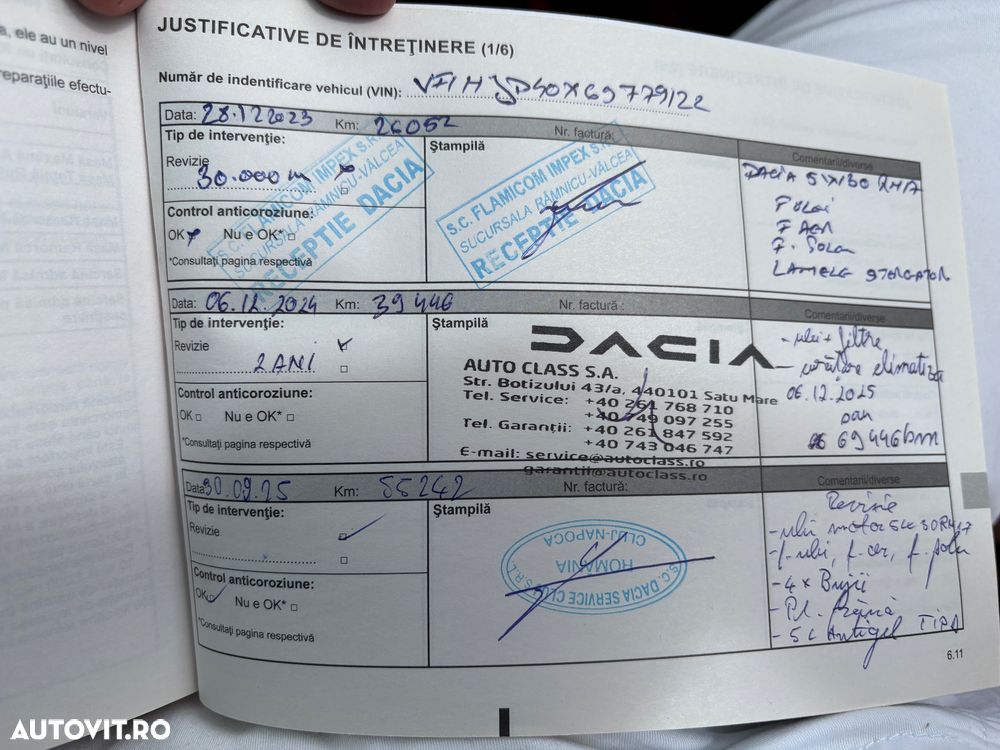 a, ele au un nivel
reparaţiile efectu-
JUSTIFICATIVE DE ÎNTREŢINERE (1/6)
Număr de indentificare vehicul (VIN):
Data: 28.12 2023 Km: 26052 Nr. factură:
Tip de intervenţie:
Revizie
30.000
Control anticoroziune:
OK Nu e OK*
*Consultaţi pagina respectivă
S.C. FLAMICOM IMPEX S.R.
SUCURSALA RÂMNICU-VÂLCEA
RECEPTIE DACIA
Ştampilă
S.C. FLAMICOM IMPEX S.R.
SUCURSALA RÂMNICU-VÂLCEA
RECEPTIE DACIA
Comentarii/diverse
DACIA 5W30 RN17
F. Polen
Data: 06.12.2024 Km: 39446 Nr. factură :
Tip de intervenţie:
Revizie
2 ANI
Control anticoroziune:
OK Nu e OK*
*Consultaţi pagina respectivă
Ştampilă
DACIA
AUTO CLASS S.A.
Str. Botizului 43/a, 440101 Satu Mare
Tel. Service: +40 261 768 710
+40 749 097 255
Tel. Garanţii: +40 261 847 592
+40 743 046 747
E-mail: service@autoclass.ro
garantii@autoclass.ro
Comentarii/diverse
- ulei + filtre
06.12.2025
sau
69446 km
Data 30.09.25 Km: 55242 Nr. factură:
Tip de intervenţie:
Revizie
Control anticoroziune:
OK Nu e OK*
*Consultaţi pagina respectivă
Ştampilă
S.C. DACIA SERVICE CLUJ S.R.L.
ROMANIA
CLUJ-NAPOCA
Comentarii/diverse
Revizie
- ulei motor 5L 5W30 RN17
- f. ulei, f. aer, f. polen
- 4 x Bujii
- Pl. frână
- 5L Antigel TIP D
6.11
AUTOVIT.RO